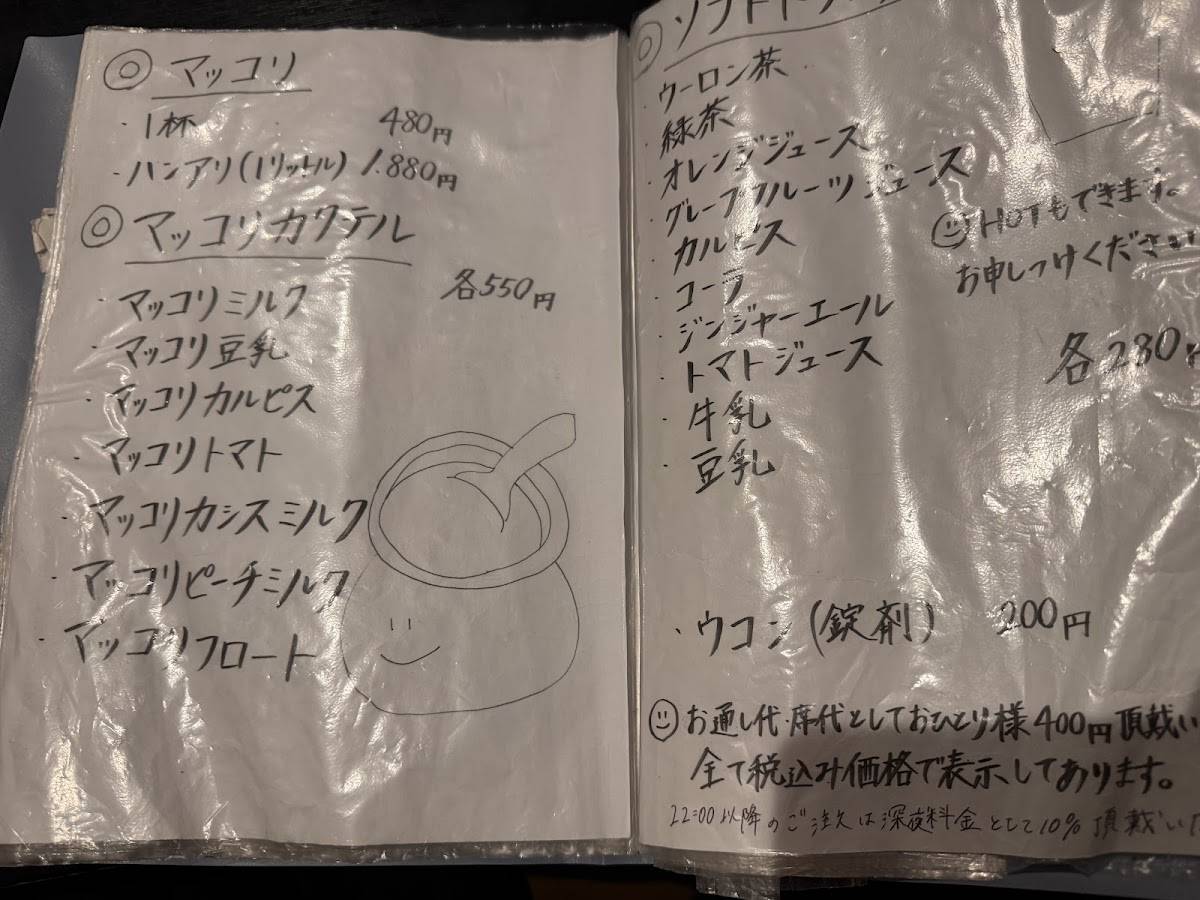 ◎ マッコリ
・1杯 480円
・ハンアリ(1リットル) 1.880円
◎ マッコリカクテル
各550円
・マッコリミルク
・マッコリ豆乳
・マッコリカルピス
・マッコリトマト
・マッコリカシスミルク
・マッコリピーチミルク
・マッコリフロート
◎ ソフトドリンク
・ウーロン茶
・緑茶
・オレンジジュース
・グレープフルーツジュース
・カルピス
・コーラ
・ジンジャーエール
・トマトジュース
・牛乳
・豆乳
HOTもできます。
お申しつけください
各280円
・ウコン(錠剤) 200円
お通し代・席代としておひとり様400円頂戴い
全て税込み価格で表示してあります。
22:00以降のご注文は深夜料金として10%頂戴いた